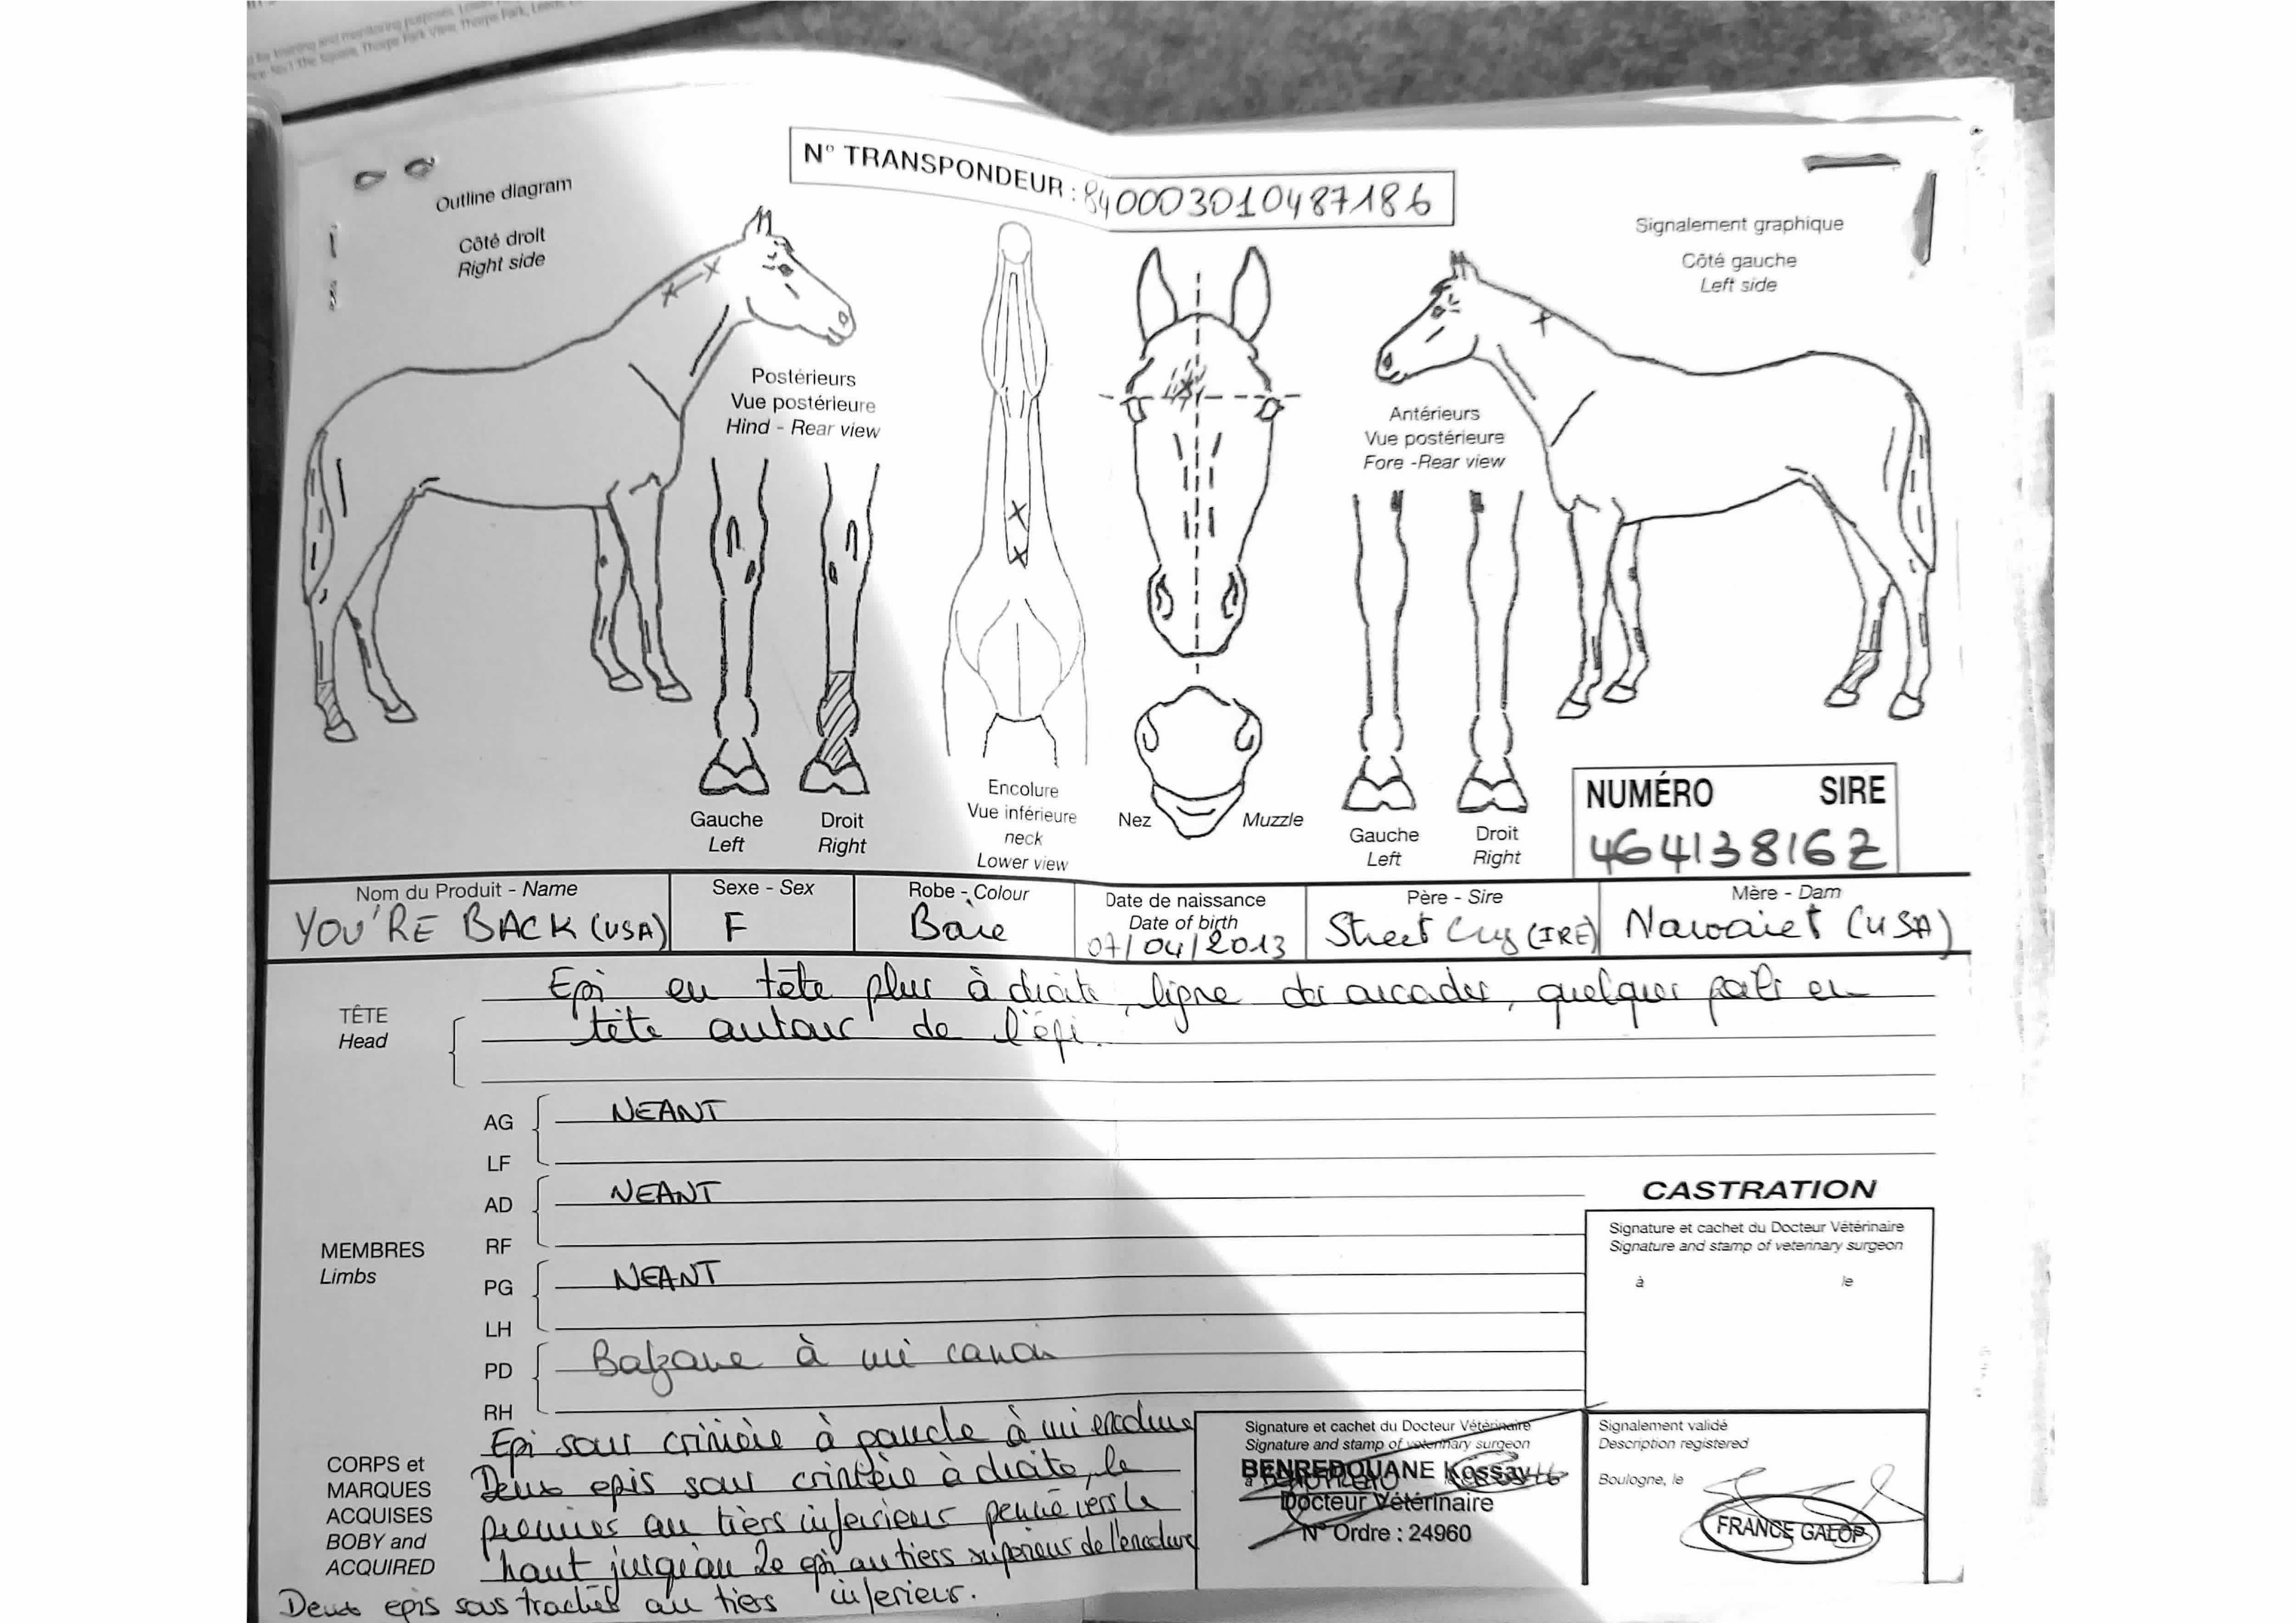 for training and monitoring purposes.
No1 The Square, Thorpe Park View, Thorpe Park, Leeds,
N° TRANSPONDEUR : 840003010487186
Outline diagram
Côté droit
Right side
Signalement graphique
Côté gauche
Left side
Postérieurs
Vue postérieure
Hind - Rear view
Antérieurs
Vue postérieure
Fore -Rear view
Gauche
Left
Droit
Right
Encolure
Vue inférieure
neck
Lower view
Nez
Muzzle
Gauche
Left
Droit
Right
NUMÉRO SIRE
46413816Z
Nom du Produit - Name
YOU'RE BACK (USA)
Sexe - Sex
F
Robe - Colour
Baie
Date de naissance
Date of birth
07/04/2013
Père - Sire
Street Cry (IRE)
Mère - Dam
Nawaiet (USA)
TÊTE
Head
Epi en tête plus à droite, ligne des arcades, quelques poils en
tête autour de l'épi.
MEMBRES
Limbs
AG NEANT
LF
AD NEANT
RF
PG NEANT
LH
PD Balzane à mi canon
RH
CASTRATION
Signature et cachet du Docteur Vétérinaire
Signature and stamp of veterinary surgeon
à le
CORPS et
MARQUES
ACQUISES
BOBY and
ACQUIRED
Epi sous crinière à gauche à mi encolure
Deux epis sous crinière à droite, le
premier au tiers inferieur penné vers le
haut jusqu'au 2e epi au tiers superieur de l'encolure
Deux epis sous trachée au tiers inferieur.
Signature et cachet du Docteur Vétérinaire
Signature and stamp of veterinary surgeon
BENREDOUANE Kossay
Docteur Vétérinaire
N° Ordre : 24960
Signalement validé
Description registered
Boulogne, le
FRANCE GALOP